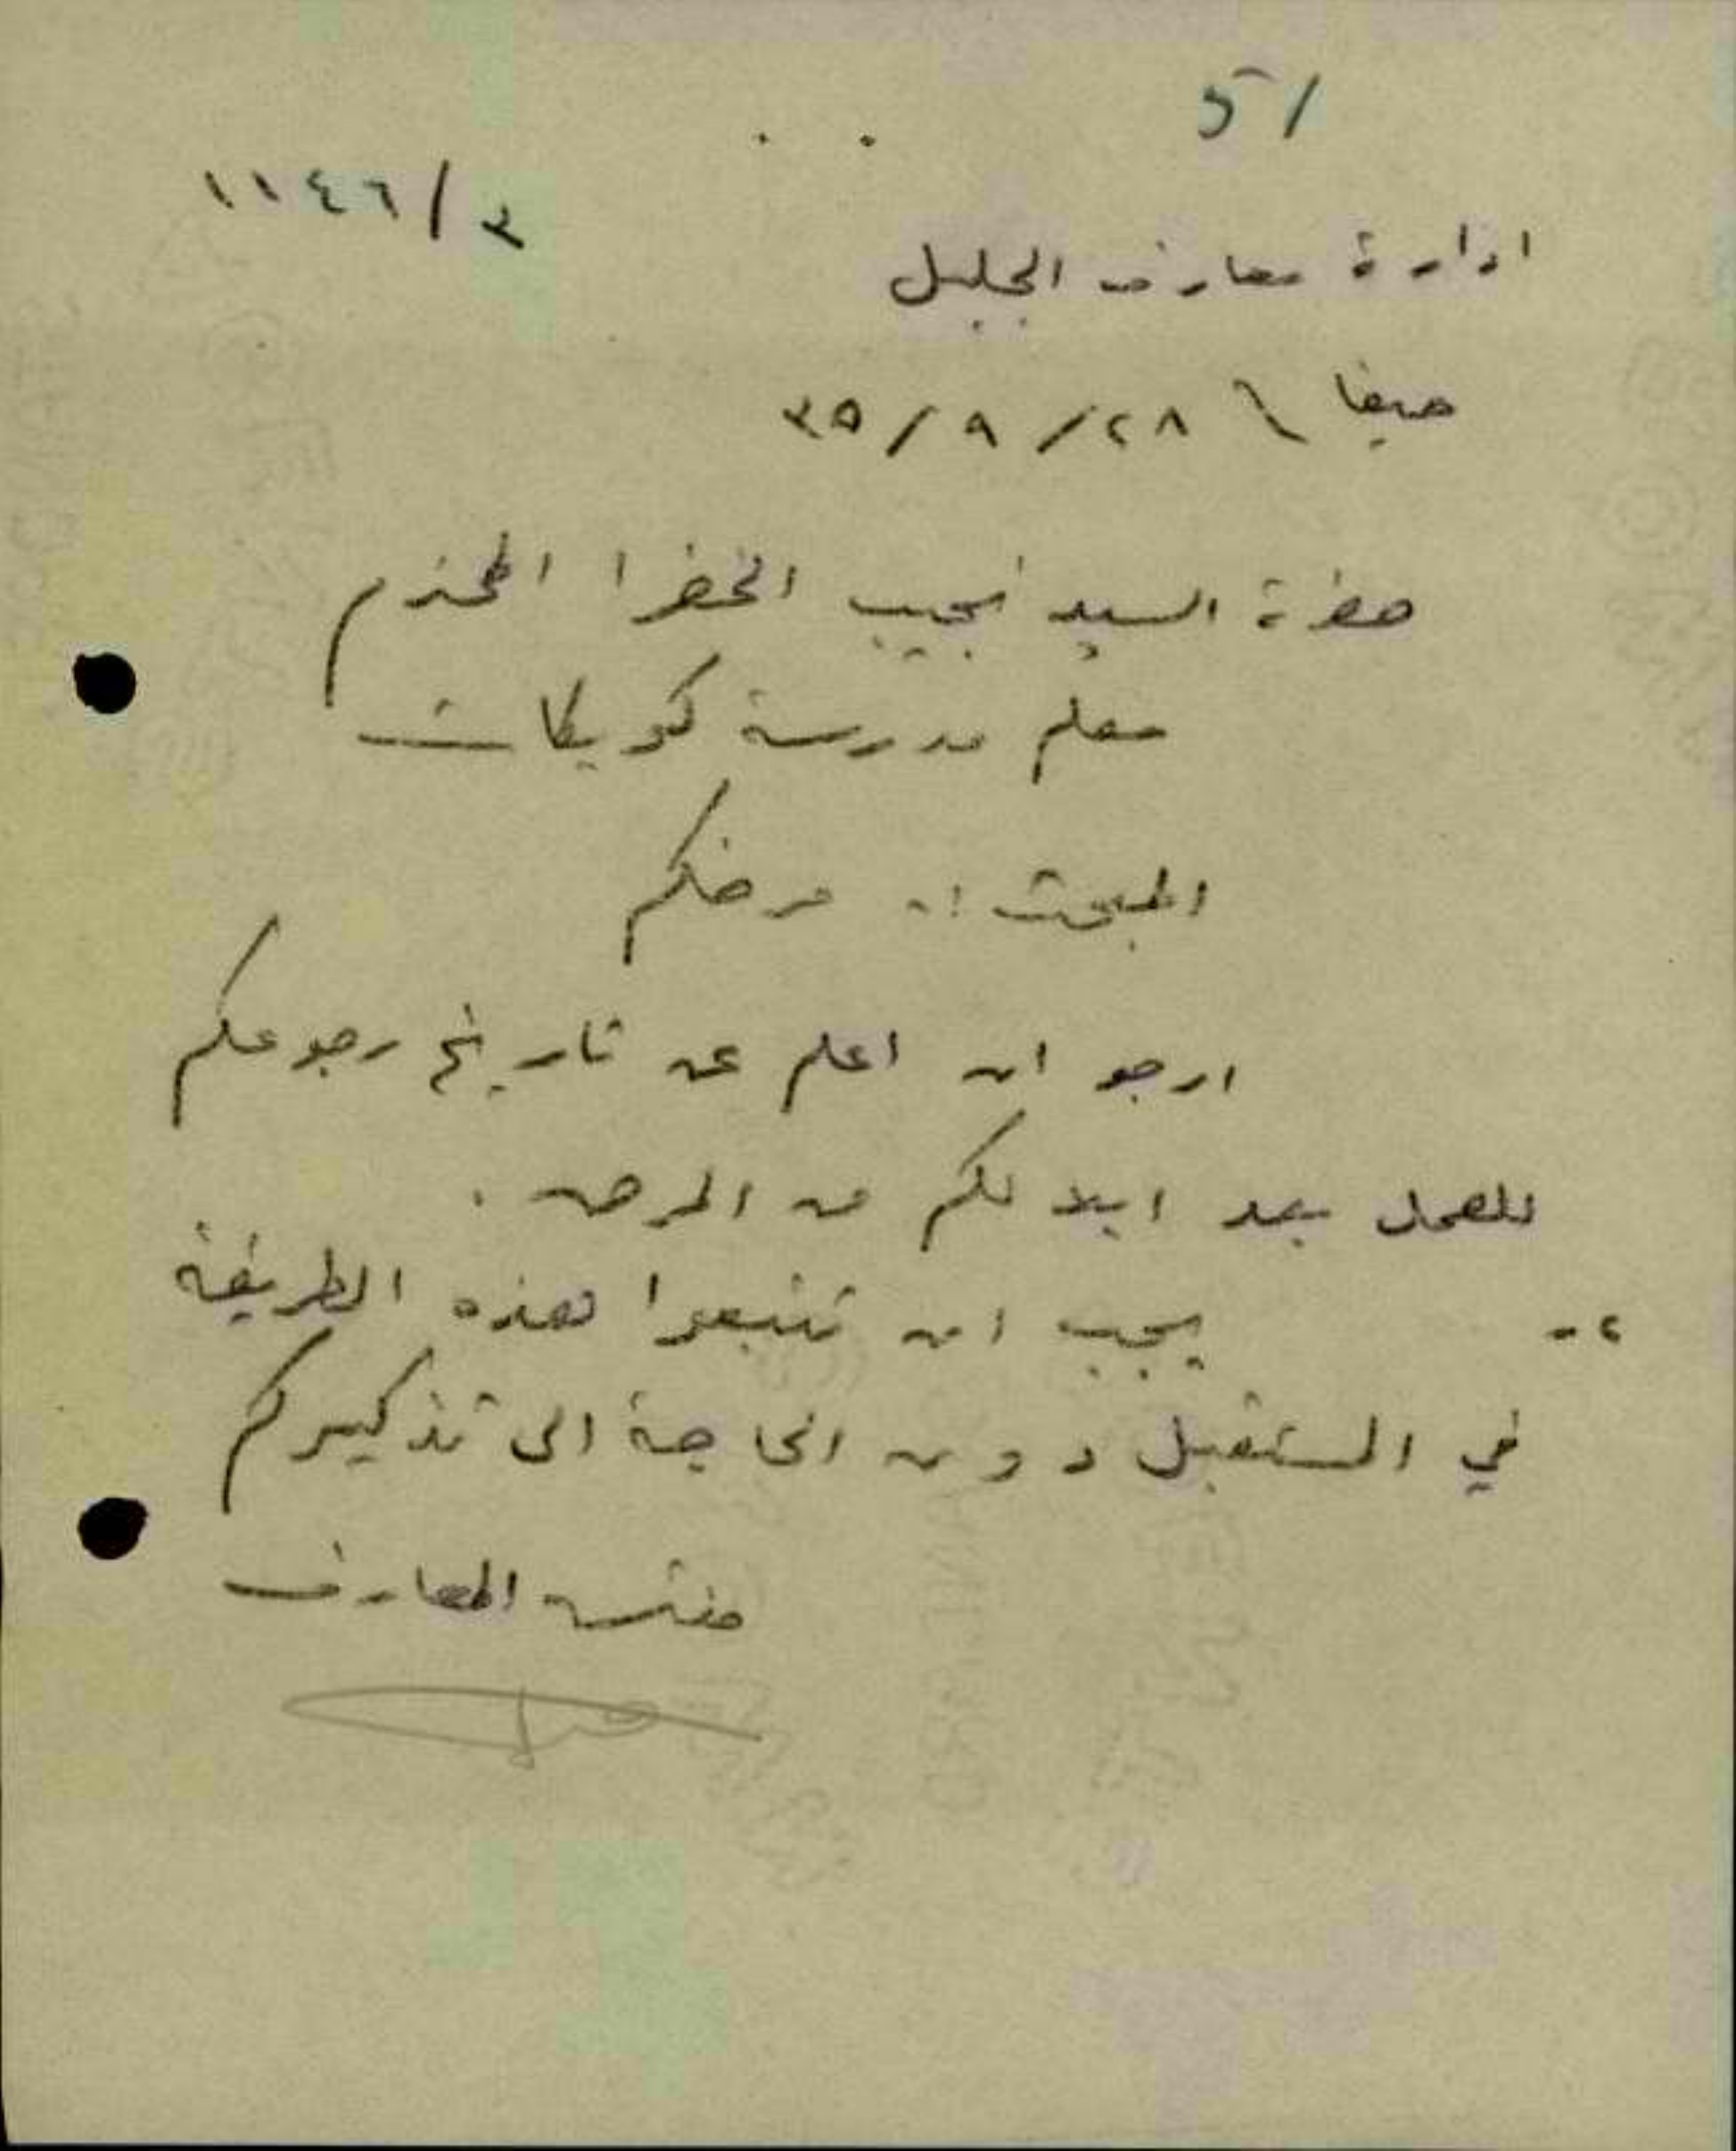 51
١١٤٦/٣
ادارة معارف الجليل
حيفا \ ٢٨/ ٩/ ٣٥
حضرة السيد نجيب الخضرا المحترم
معلم مدرسة كويكات
المبحث :- مرضكم
ارجو ان اعلم عن تاريخ رجوعكم
للعمل بعد ابلالكم من المرض .
٢- يجب ان تتبعوا هذه الطريقة
في المستقبل دون الحاجة الى تذكيركم
مفتش المعارف